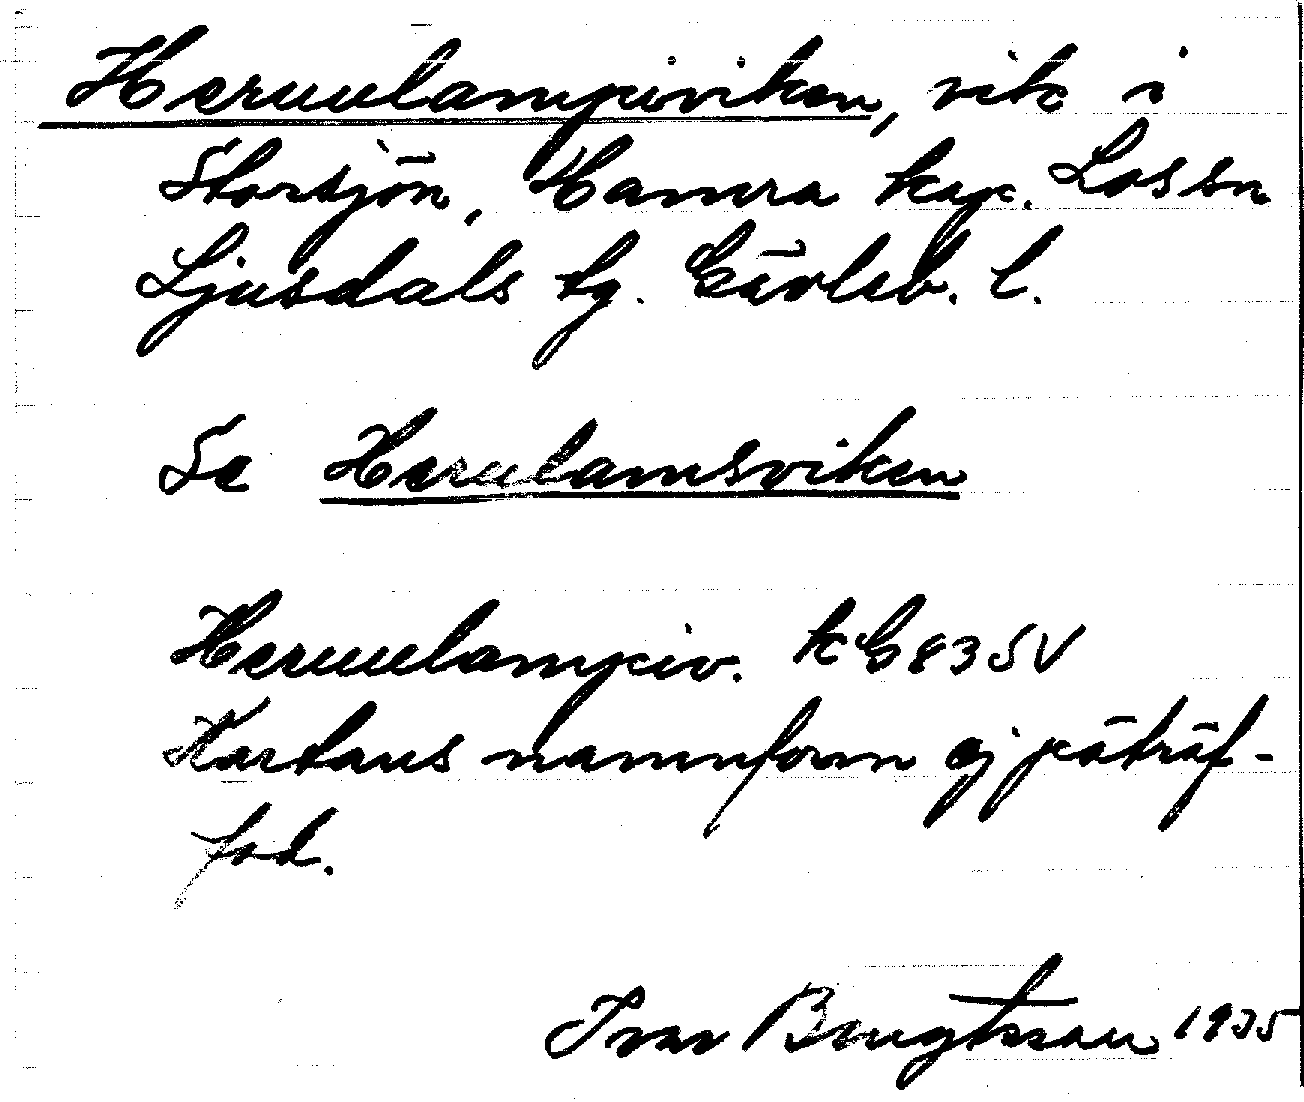 Heruulampiviken, vik i
Storsjön, Hamra kap. Lossn
Ljusdals tg. Gävleb. l.
Se Herulamsviken
Heruulampiv. kG 83 SV
Kartans namnform ej påträf-
fad.
Ivar Bengtsson 1935